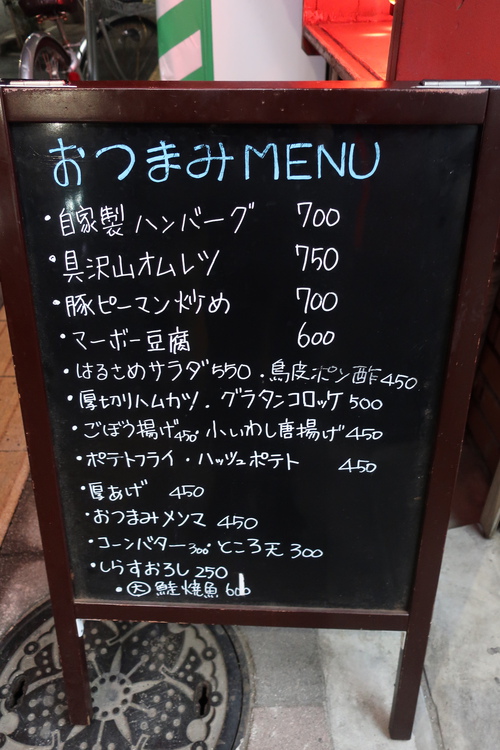 おつまみMENU
・自家製ハンバーグ 700
・具沢山オムレツ 750
・豚ピーマン炒め 700
・マーボー豆腐 600
・はるさめサラダ550・鳥皮ポン酢450
・厚切りハムカツ・グラタンコロッケ500
・ごぼう揚げ450・小いわし唐揚げ450
・ポテトフライ・ハッシュポテト 450
・厚あげ 450
・おつまみメンマ 450
・コーンバター300・ところ天300
・しらすおろし250
・㊅鮭焼魚600